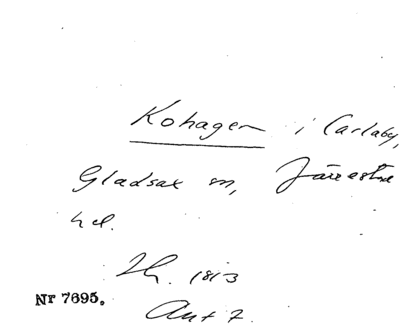 Kohagen i Carlaby,
Gladsax sn, Järrestad
hd.
Th. 1813
Ant 7.
Nr 7695.